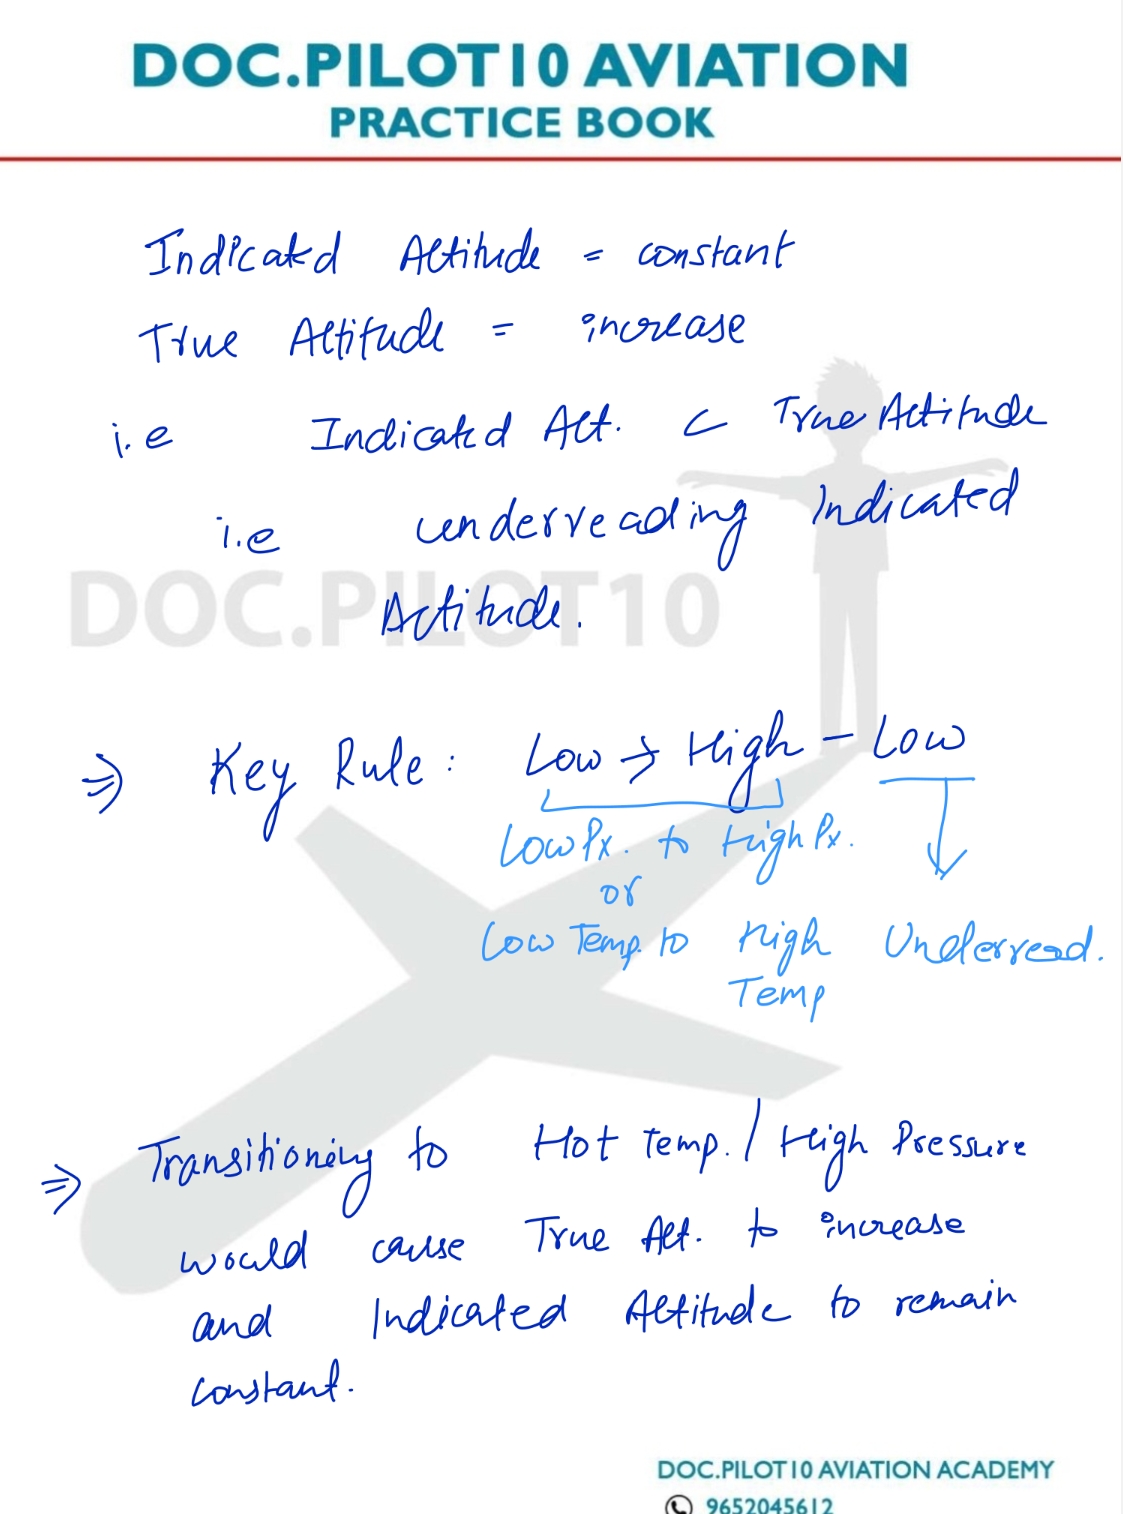 DOC.PILOT10 AVIATION
PRACTICE BOOK
Indicated Altitude = constant
True Altitude = increase
i.e Indicated Alt. < True Altitude
i.e underreading Indicated
DOC.PILOT10
Altitude.
⇒ Key Rule : Low → High - Low
Low Px. to High Px.
or
Low Temp. to High Underread.
Temp
⇒ Transitioning to Hot Temp. / High Pressure
would cause True Alt. to increase
and Indicated Altitude to remain
constant.
DOC.PILOT10 AVIATION ACADEMY
9652045612